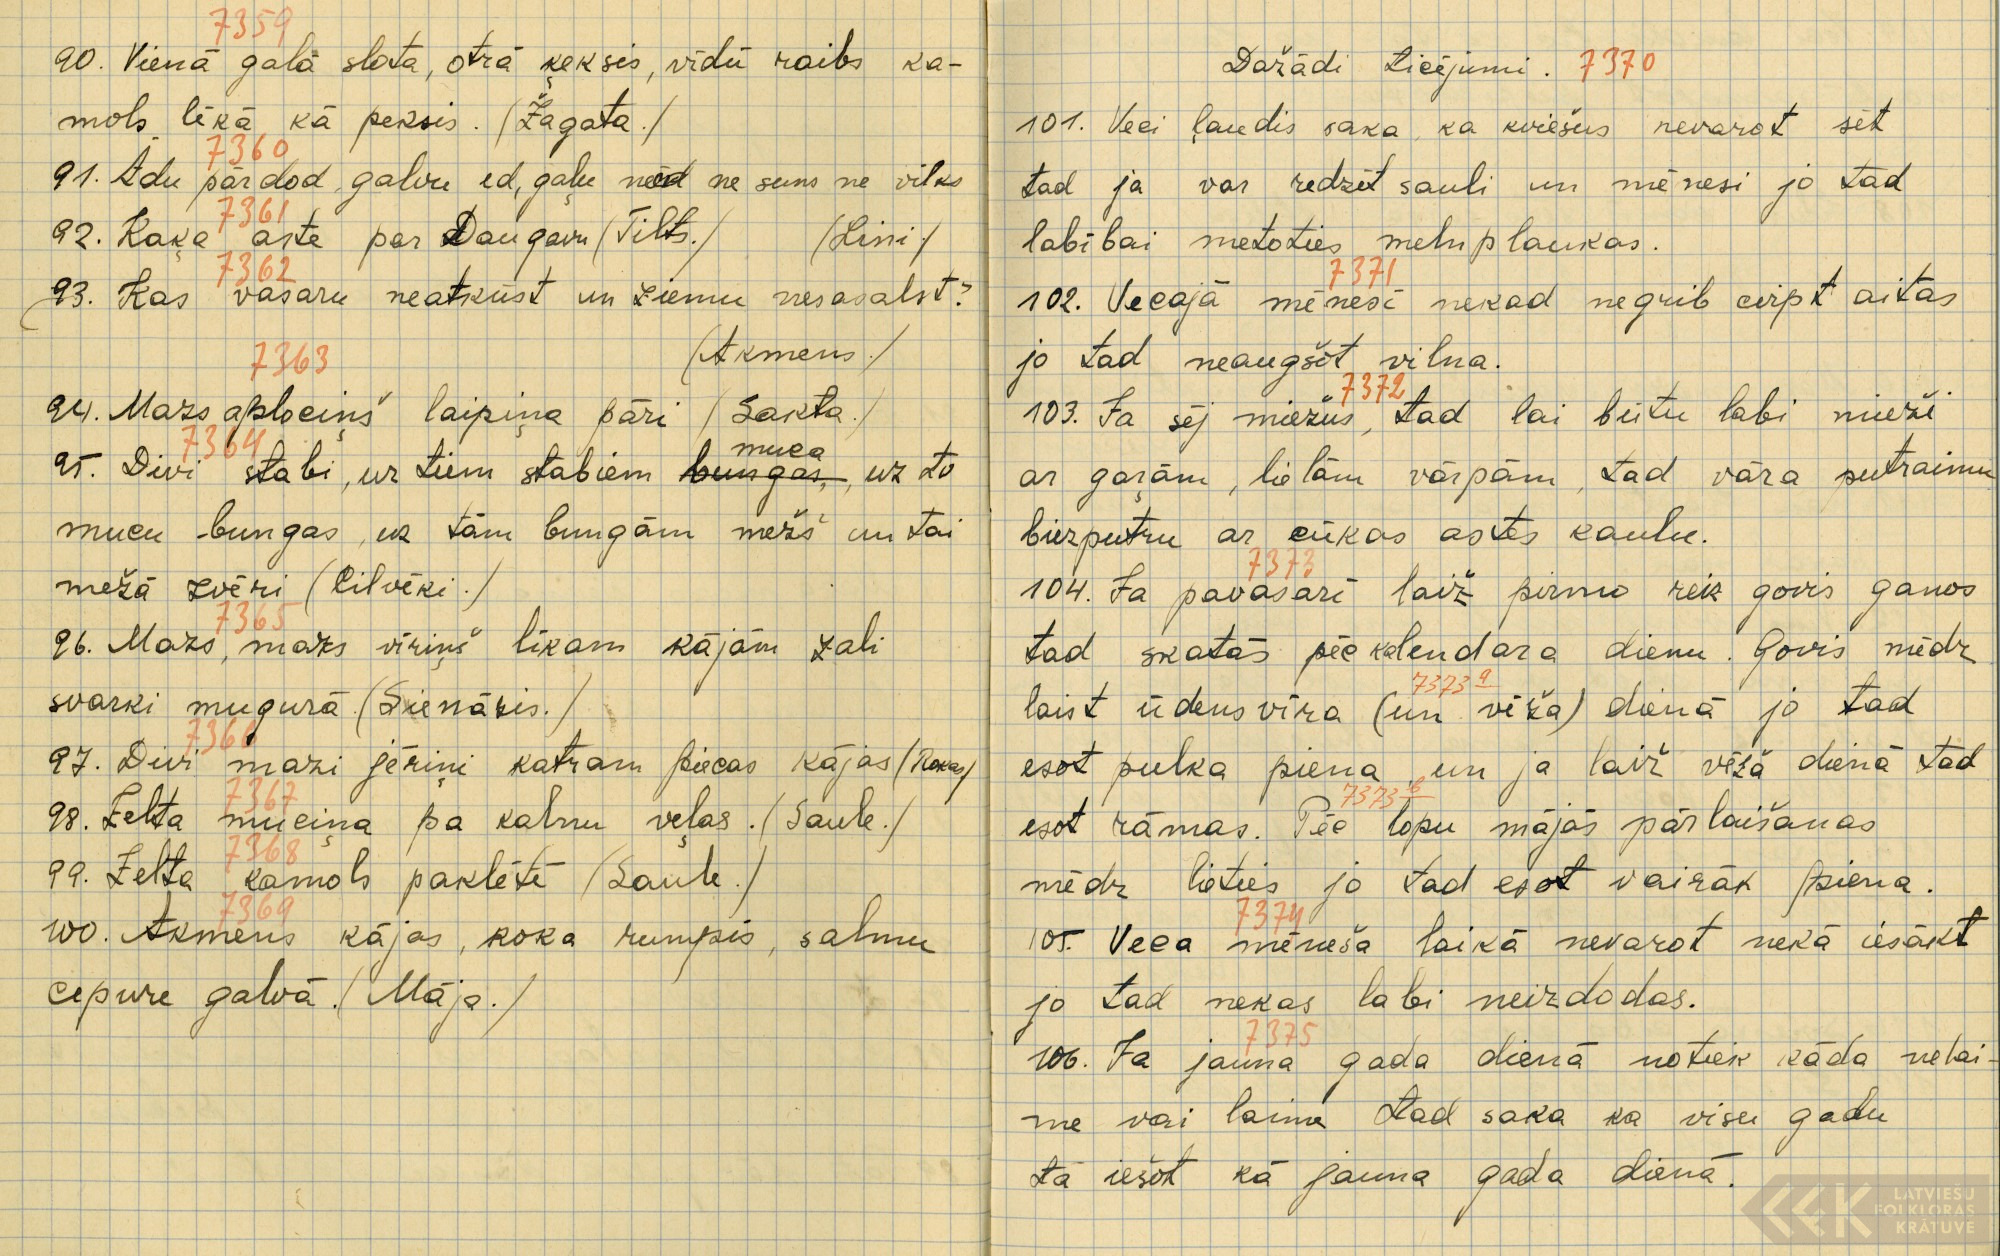 7359
90. Vienā galā slota, otrā ķeksis, vidū raibs ka-
mols lēkā kā peksis. (Žagata.)
7360
91. Ādu pārdod, galvu ed, gaļu neēd ne suns ne vilks
7361
92. Kaķa aste par Daugavu (Tilts.) (Lini.)
7362
93. Kas vasaru neatkūst un ziemu nesasalst?
(Akmens.)
7363
94. Mazs aplociņš laipiņa pāri (Sakta.)
7364
muca
95. Divi stabi, uz tiem stabiem bungas, uz to
mucu bungas, uz tām bungām mežs un tai
mežā zvēri (Cilvēki.)
7365
96. Mazs, mazs vīriņš līkam kājām zali
svarki mugurā. (Sienāzis.)
7366
97. Divi mazi jēriņi katram piecas kājas (Rokas)
7367
98. Zelta muciņa pa kalnu veļas. (Saule.)
7368
99. Zelta kamols paklētē (Saule.)
7369
100. Akmens kājas, koka rumpis, salmu
cepure galvā. (Māja.)
Dažādi ticējumi. 7370
101. Veci ļaudis saka, ka kviešus nevarot sēt
tad ja var redzēt sauli un mēnesi jo tad
labībai metoties melnplaukas.
7371
102. Vecajā mēnesī nekad negrib cirpt aitas
jo tad neaugšot vilna.
7372
103. Ja sēj miežus, tad lai būtu labi mieži
ar gaŗām, lielām vārpām, tad vāra putraimu
biezputru ar cūkas astes kaulu.
7373
104. Ja pavasarī laiž pirmo reiz govis ganos
tad skatās pēc kalendara dienu. Govis mēdz
7373 a
laist ūdensvīra (un vēža) dienā jo tad
esot pulka piena, un ja laiž vēžā dienā tad
7373 b
esot rāmas. Pēc lopu mājās pārlaišanas
mēdz lieties jo tad esot vairāk piena.
7374
105. Veca mēneša laikā nevarot nekā iesākt
jo tad nekas labi neizdodas.
7375
106. Ja jauna gada dienā notiek kāda nelai-
me vai laime tad saka ka visu gadu
tā iešot kā jauna gada dienā.
LATVIEŠU
FOLKLORAS
KRĀTUVE